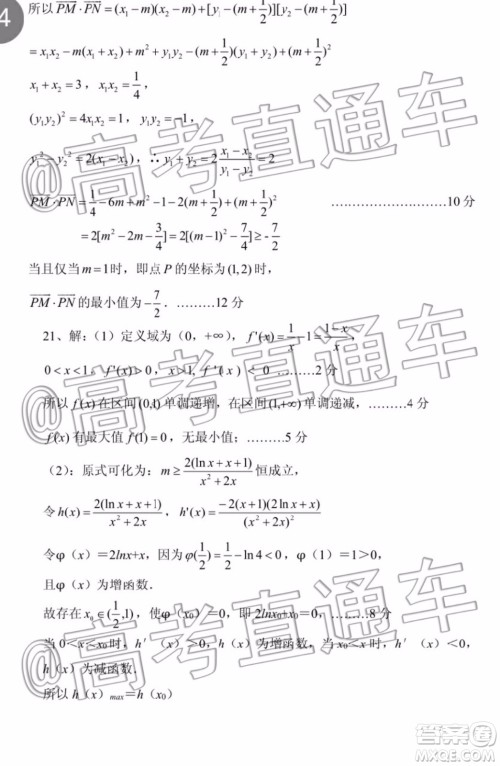 4
所以 PM·PN=(x₁−m)(x₂−m)+[y₁−(m+1/2)][y₂−(m+1/2)]
=x₁x₂−m(x₁+x₂)+m²+y₁y₂−(m+1/2)(y₁+y₂)+(m+1/2)²
x₁+x₂=3，x₁x₂=1/4，
(y₁y₂)²=4x₁x₂=1，y₁y₂=−1，
y₁²−y₂²=2(x₁−x₂)，∴y₁+y₂=2(x₁−x₂)/(y₁−y₂)=2
PM·PN=1/4−6m+m²−1−2(m+1/2)+(m+1/2)² ………………10 分
=2[m²−2m−3/4]=2[(m−1)²−7/4]≥−7/2
当且仅当m=1时，即点P的坐标为(1,2)时，
PM·PN的最小值为−7/2．………12 分
21、解：（1）定义域为（0，+∞），f′(x)=1/x−1=(1−x)/x，
0<x<1，f′(x)>0，x>1，f′(x)<0 ………2分
所以f(x)在区间(0,1)单调递增，在区间(1,+∞)单调递减，………4 分
f(x)有最大值f(1)=0，无最小值；………5 分
（2）：原式可化为：m≥2(ln x+x+1)/(x²+2x)恒成立，
令h(x)=2(ln x+x+1)/(x²+2x)，h′(x)=−2(x+1)(2ln x+x)/(x²+2x)²
令φ（x）=2lnx+x，因为φ(1/2)=1/2−ln4<0，φ（1）=1>0，
且φ（x）为增函数．
故存在x₀∈(1/2,1)，使φ（x₀）=0，即2lnx₀+x₀=0，………8分
当0<x<x₀时，h′（x）>0，h（x）为增函数，当x>x₀时，h′（x）<0，
h（x）为减函数．
所以h（x）max=h（x₀）
@高考直通车
@高考直通车
@高考直通车
答案圈
MXQE.COM